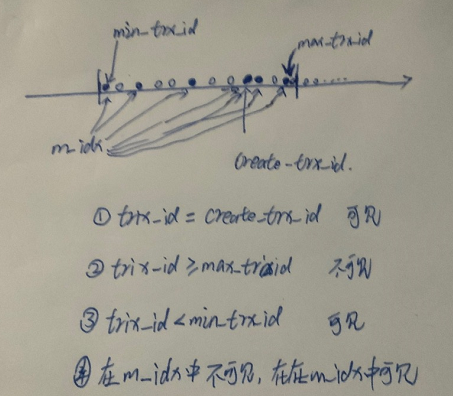 min_trx_id
max_trx_id
m_idx
create_trx_id.
① trx_id = create_trx_id 可见
② trix_id ≥ max_trixid 不可见
③ trix_id < min_trx_id 可见
④ 在m_idx中不可见, 在在m_idx中可见